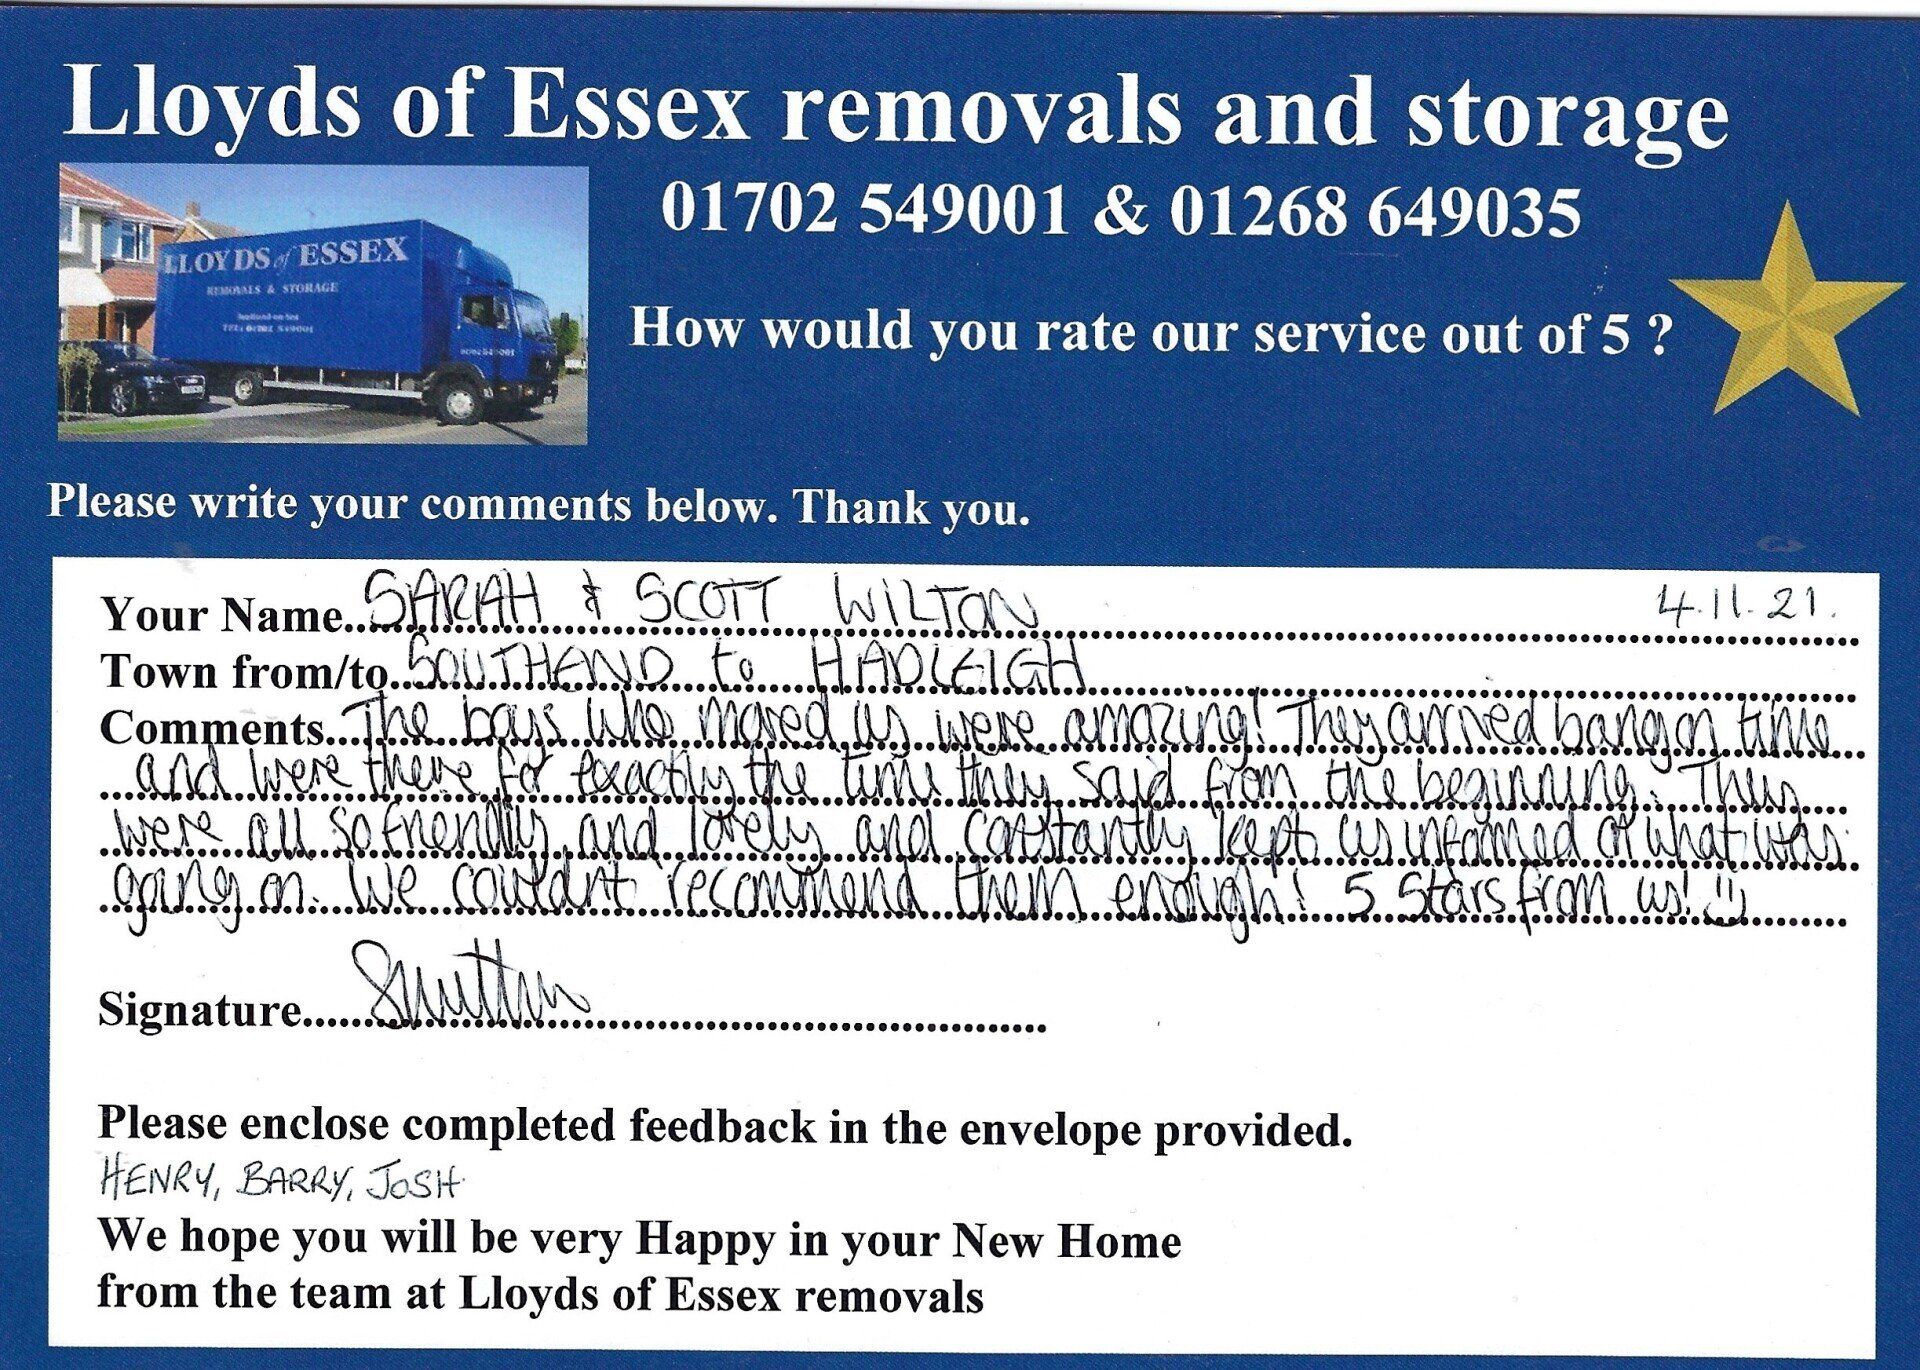 Lloyds of Essex removals and storage
01702 549001 & 01268 649035
LLOYDS of ESSEX
REMOVALS & STORAGE
Southend-on-Sea
TEL: 01702 549001
01702 549001
How would you rate our service out of 5 ?
Please write your comments below. Thank you.
4.11.21.
Your Name..SARAH & SCOTT WILTON
Town from/to..SOUTHEND to HADLEIGH
Comments...The boys who moved us were amazing! They arrived bang on time
and were there for exactly the time they said from the beginning. They
were all so friendly, and lovely and constantly kept us informed of what was
going on. We couldn't recommend them enough! 5 Stars from us! :)
Signature
Please enclose completed feedback in the envelope provided.
HENRY, BARRY, JOSH
We hope you will be very Happy in your New Home
from the team at Lloyds of Essex removals